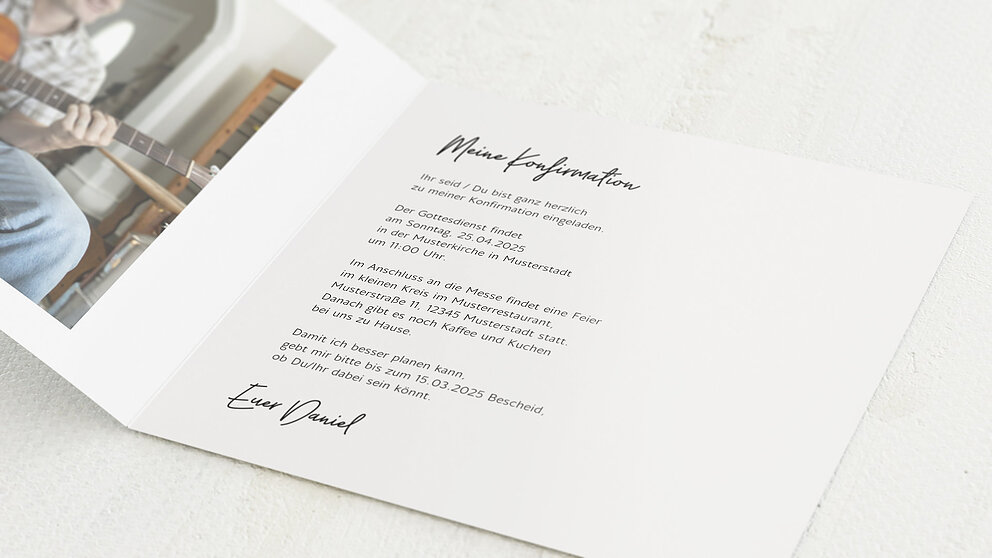 Meine Konfirmation
Ihr seid / Du bist ganz herzlich
zu meiner Konfirmation eingeladen.
Der Gottesdienst findet
am Sonntag, 25.04.2025
in der Musterkirche in Musterstadt
um 11:00 Uhr.
Im Anschluss an die Messe findet eine Feier
im kleinen Kreis im Musterrestaurant,
Musterstraße 11, 12345 Musterstadt statt.
Danach gibt es noch Kaffee und Kuchen
bei uns zu Hause.
Damit ich besser planen kann,
gebt mir bitte bis zum 15.03.2025 Bescheid,
ob Du/Ihr dabei sein könnt.
Euer Daniel